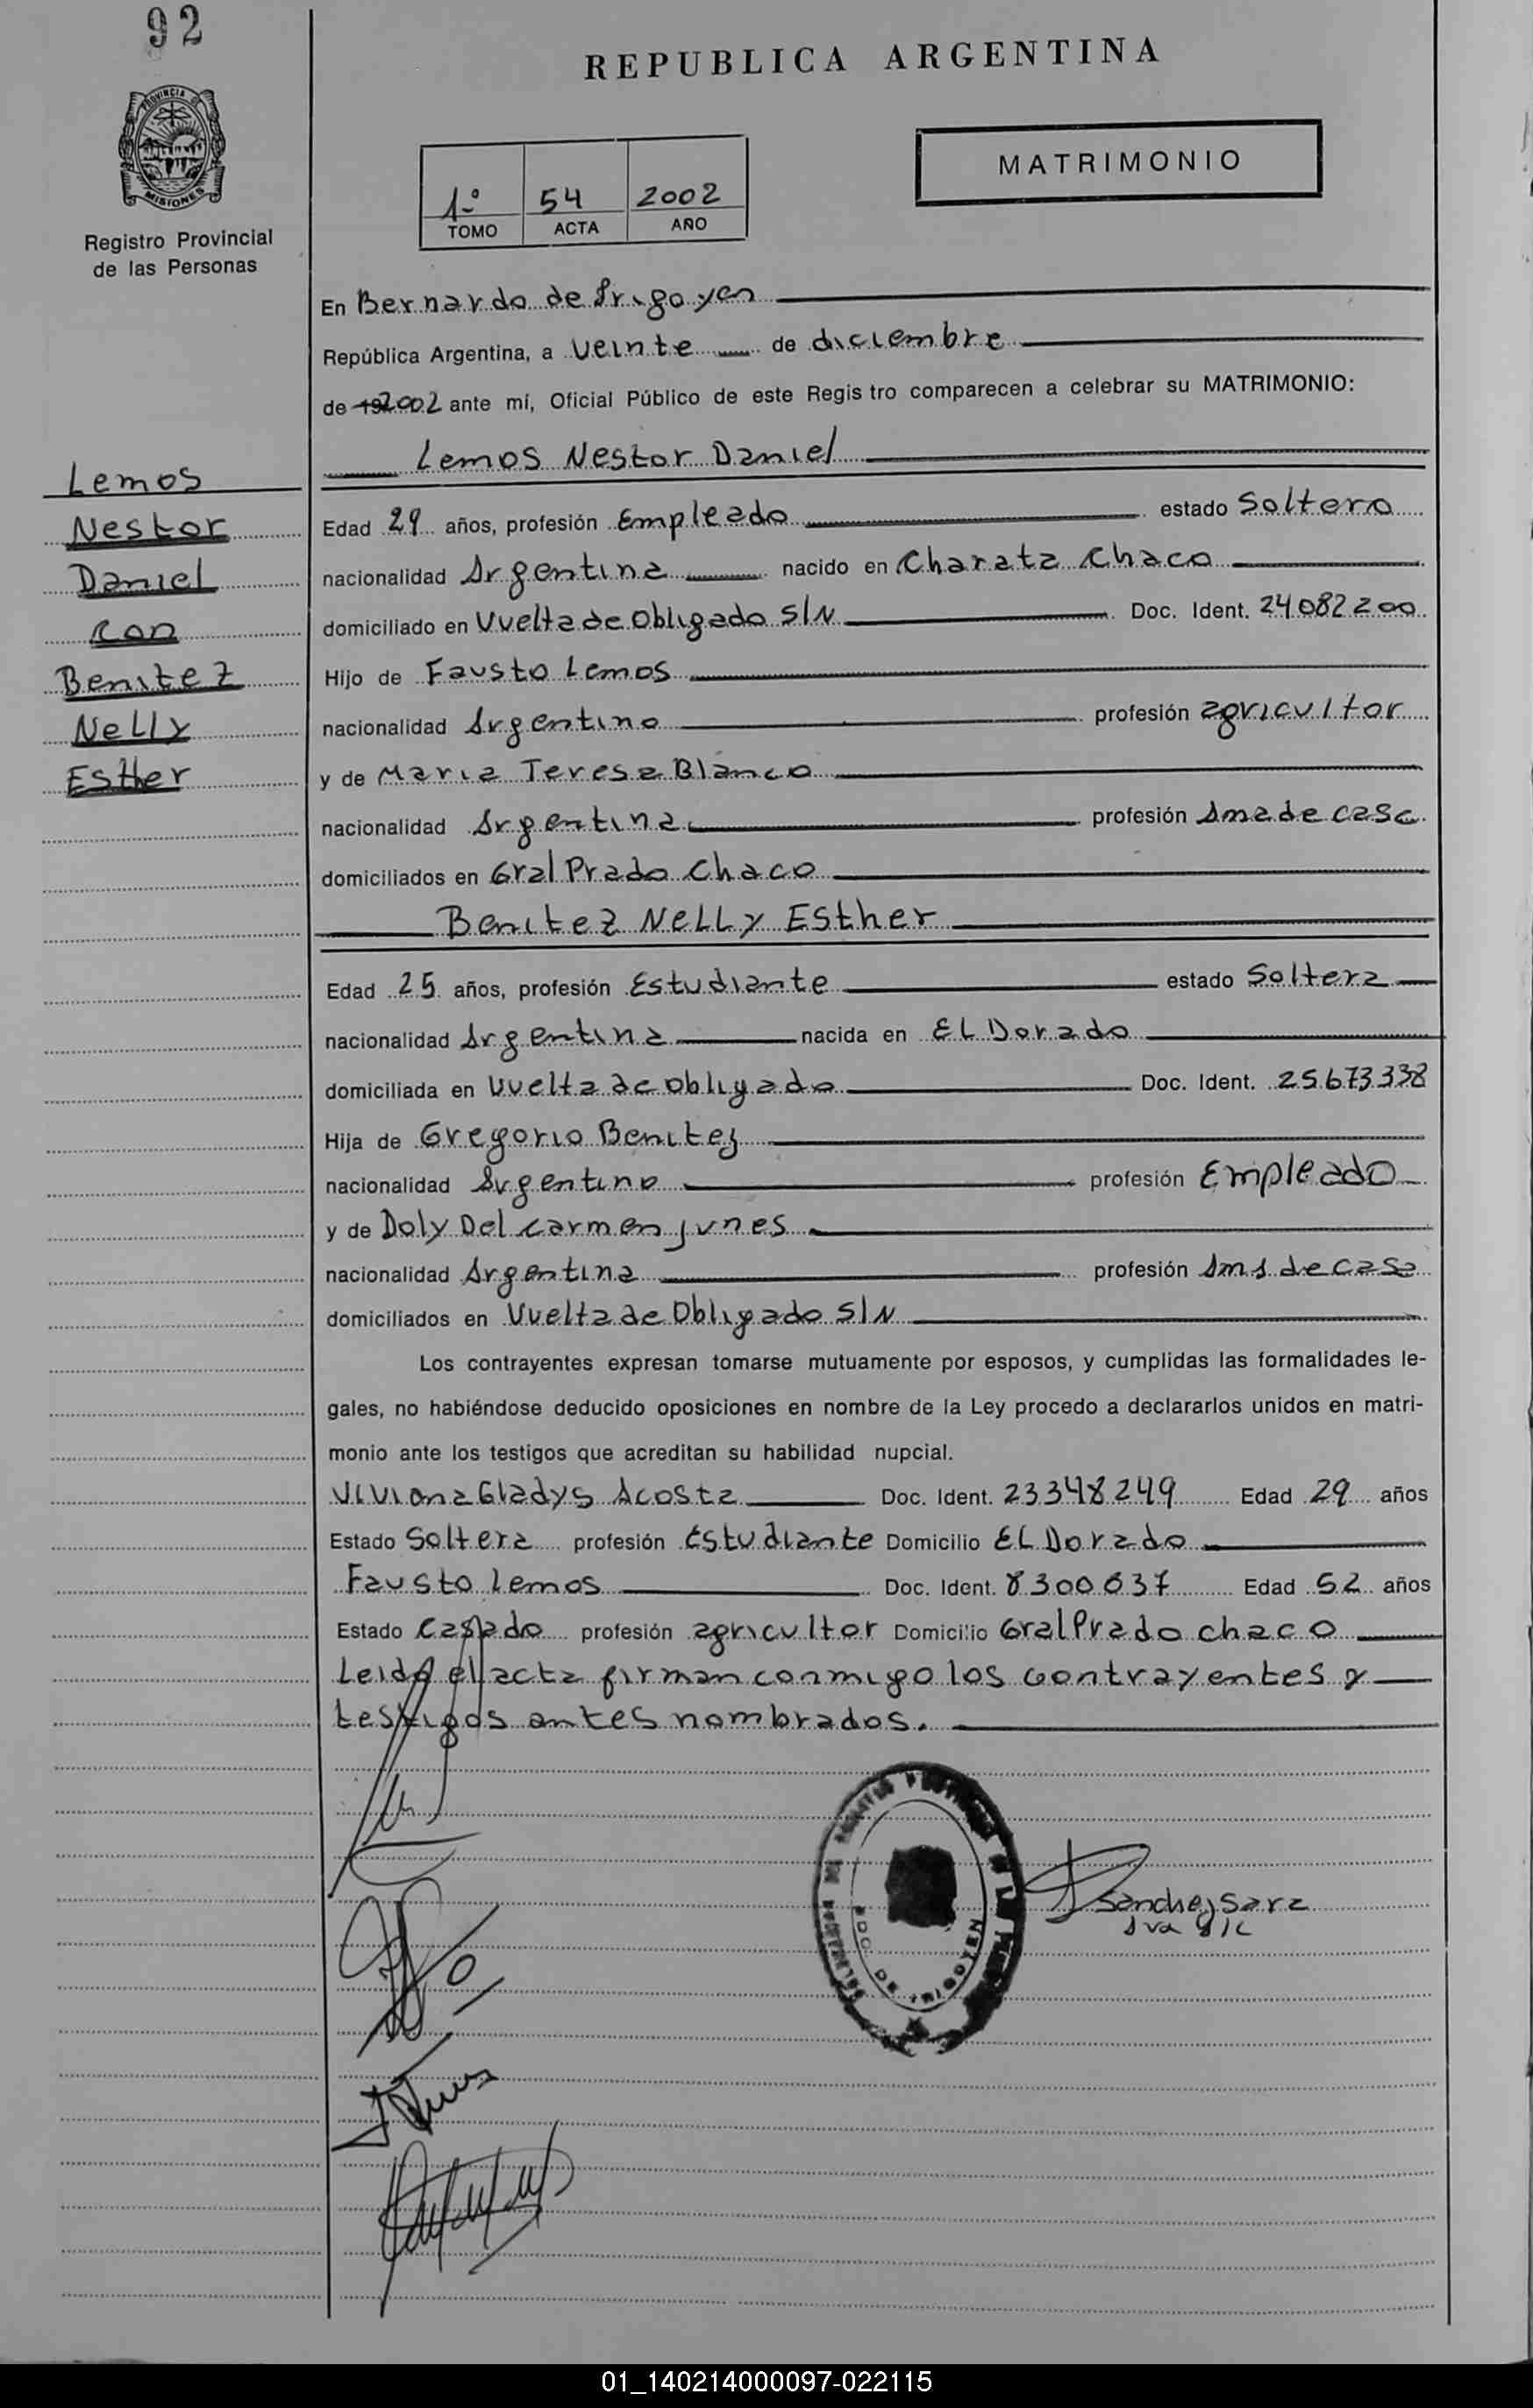 92
REPUBLICA ARGENTINA
PROVINCIA DE
MISIONES
Registro Provincial
de las Personas
1º 54 2002
TOMO ACTA AÑO
MATRIMONIO
En Bernardo de Irigoyen
República Argentina, a veinte de diciembre
de 192002 ante mí, Oficial Público de este Regis tro comparecen a celebrar su MATRIMONIO:
Lemos Nestor Daniel
Lemos
Nestor
Daniel
Con
Benitez
Nelly
Esther
Edad 29 años, profesión Empleado estado Soltero
nacionalidad Argentina nacido en Charata Chaco
domiciliado en Vuelta de Obligado S/N Doc. Ident. 24082200
Hijo de Fausto Lemos
nacionalidad Argentino profesión agricultor
y de Maria Teresa Blanco
nacionalidad Argentina profesión Ama de casa
domiciliados en Gral Prado Chaco
Benitez Nelly Esther
Edad 25 años, profesión Estudiante estado Soltera
nacionalidad Argentina nacida en EL Dorado
domiciliada en Vuelta de obligado Doc. Ident. 25673338
Hija de Gregorio Benitez
nacionalidad Argentino profesión Empleado
y de Doly Del carmen junes
nacionalidad Argentina profesión Ama de casa
domiciliados en Vuelta de Obligado S/N
Los contrayentes expresan tomarse mutuamente por esposos, y cumplidas las formalidades le-
gales, no habiéndose deducido oposiciones en nombre de la Ley procedo a declararlos unidos en matri-
monio ante los testigos que acreditan su habilidad nupcial.
Viviana Gladys Acosta Doc. Ident. 23348249 Edad 29 años
Estado Soltera profesión Estudiante Domicilio EL Dorado
Fausto Lemos Doc. Ident. 8300637 Edad 52 años
Estado Casado profesión agricultor Domicilio Gral Prado chaco
Leida el acta firman conmigo los contrayentes y
testigos antes nombrados.
Sanchez Sara
01_140214000097-022115